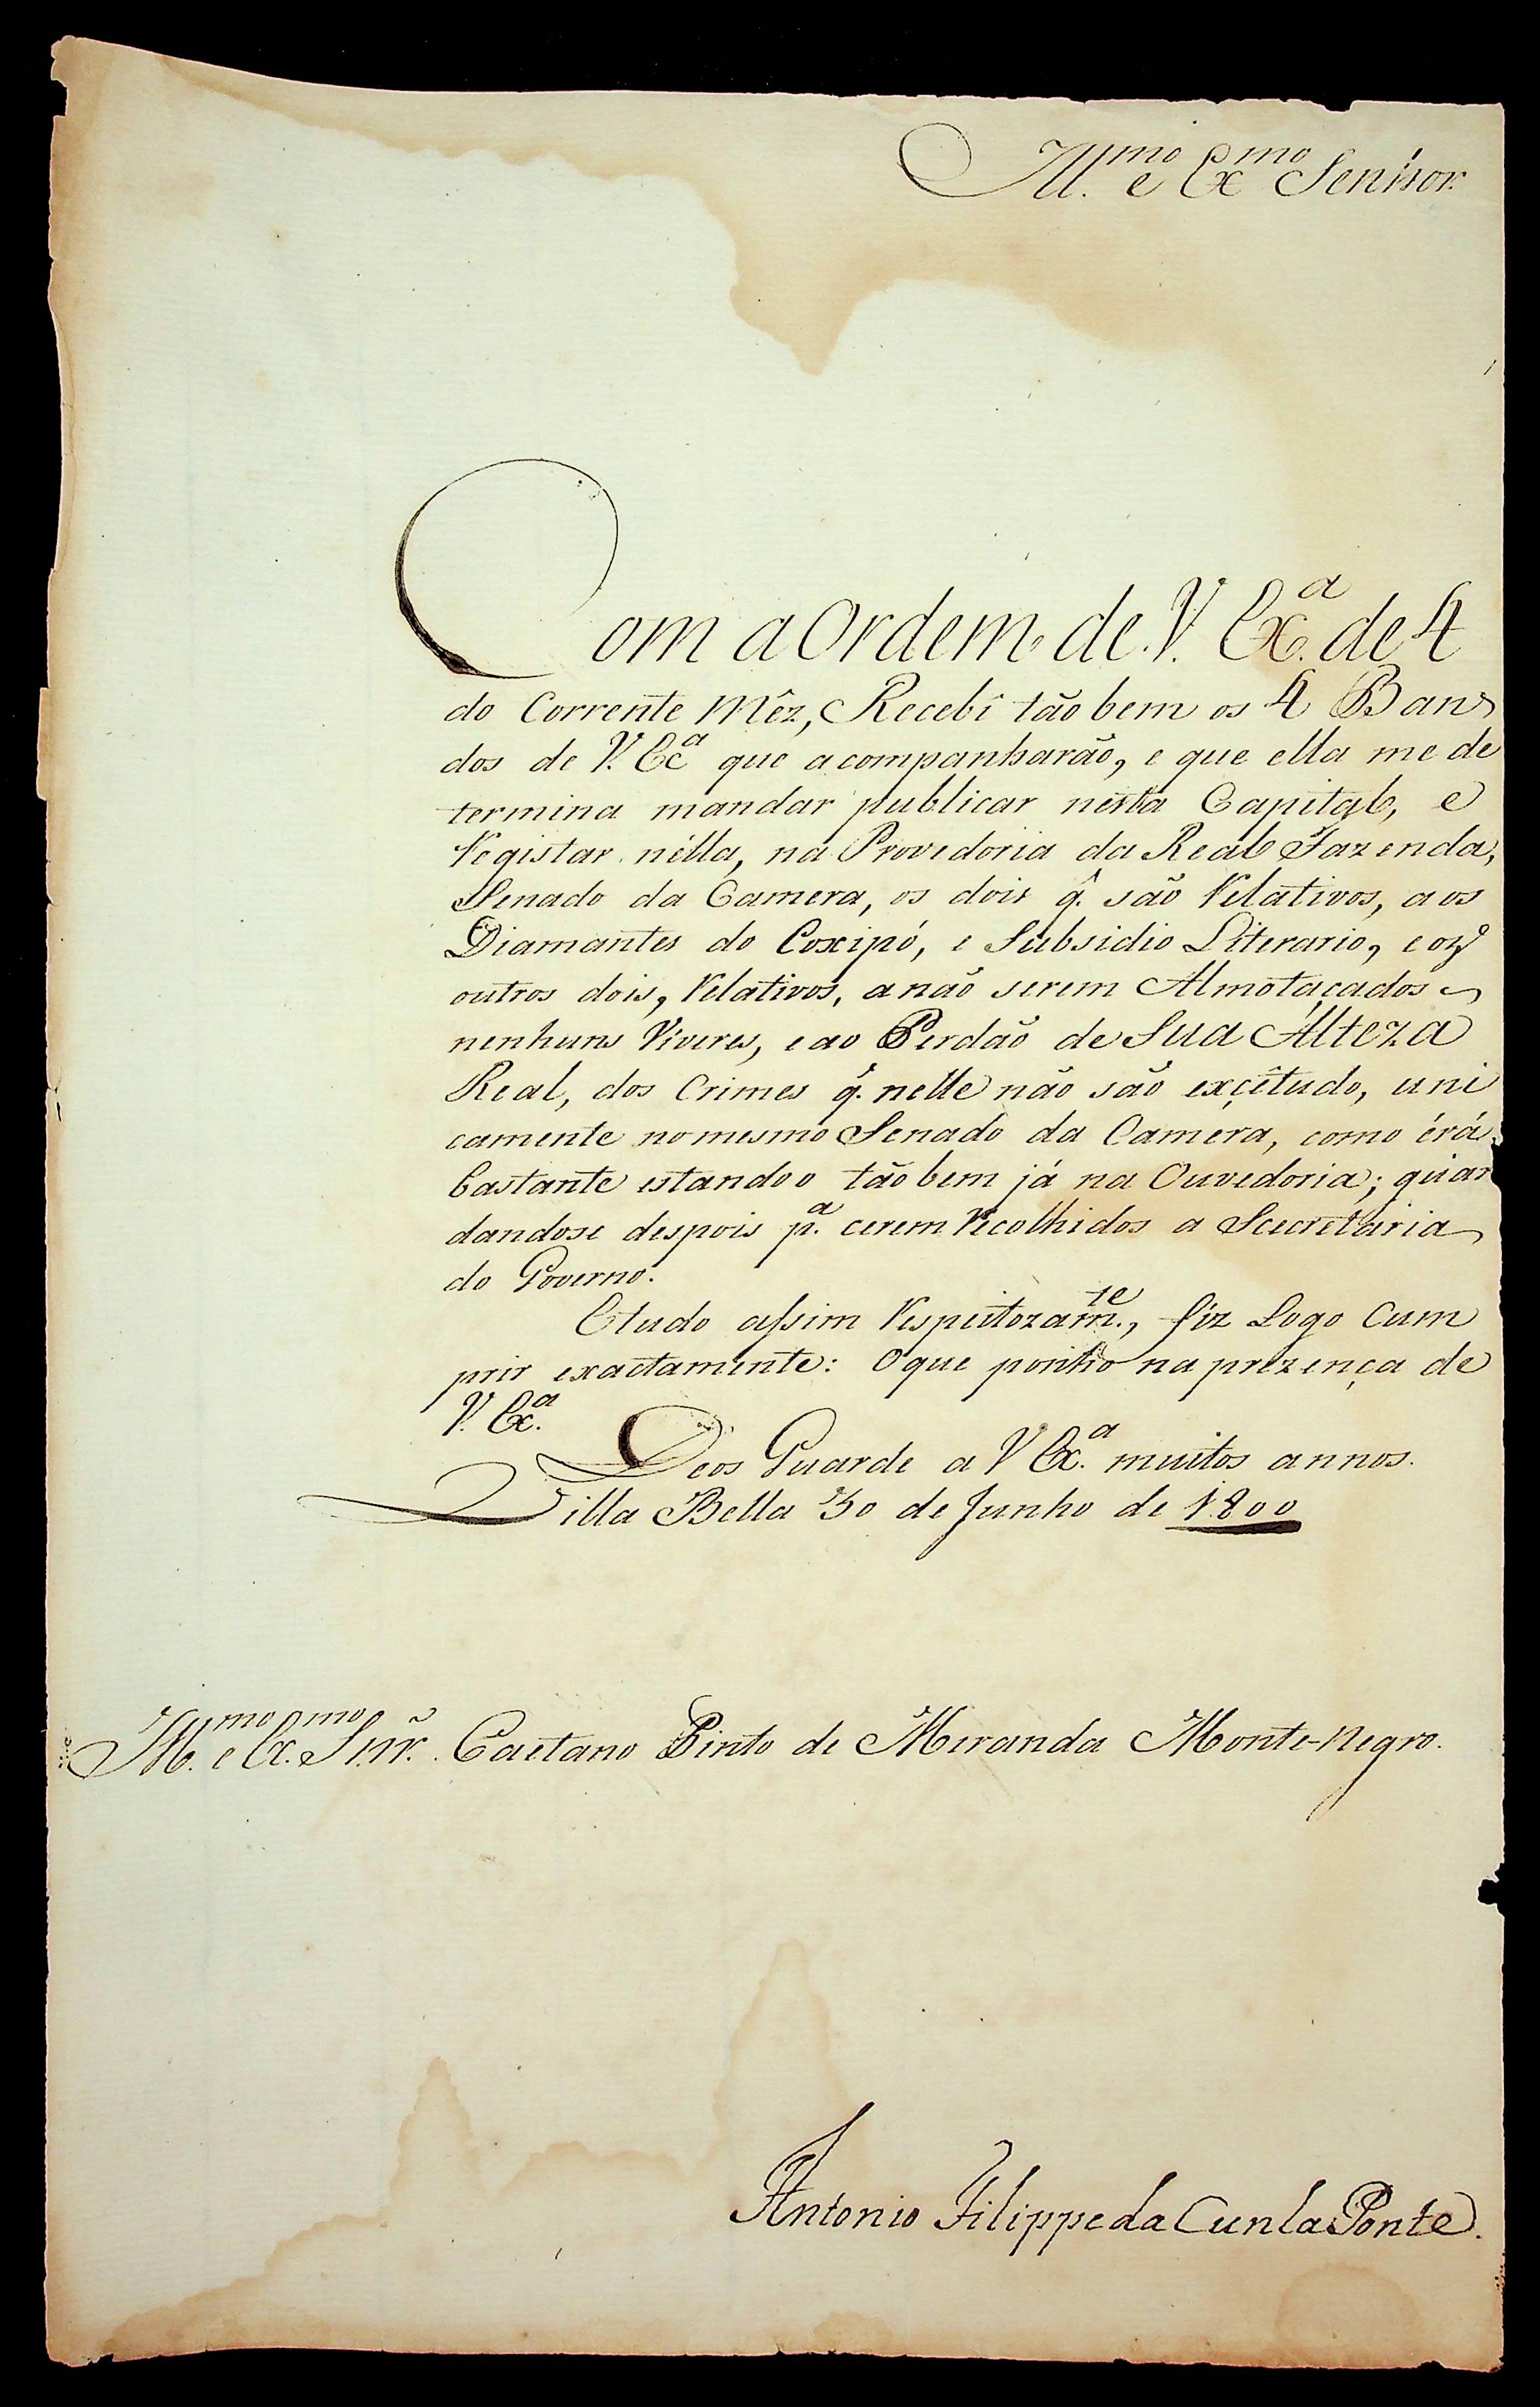 Ill.mo e Ex.mo Senhor.
Com a Ordem de V. Ex.a de 4
do Corrente Mêz, Recebî tão bem os 4 Ban
dos de V. Ex.a que acompanharão, e que ella me de
termina mandar publicar nesta Capital, e
Registar nélla, na Provedoria da Real Fazenda,
Senado da Camera, os dois q̂. são Relativos, aos
Diamantes do Coxipó, e Subsidio Literario, e os
outros dois, Relativos, a não serem Almotaçados
nenhuns Viveres, e ao Perdão de Sua Alteza
Real, dos Crimes q̂. nelle não são exçêtudo, uni
camente no mesmo Senado da Camera, como érá
bastante estando o tão bem já na Ouvedoria; guar
dandose despois p.a cerem Recolhidos a Scecretaria
do Governo.
E tudo assim Respeitozam.te, fiz Logo Cum
prir exactamente: O que ponho na prezença de
V. Ex.a
Deos Guarde a V Ex.a muitos annos.
Villa Bella 30 de Junho de 1800
Ill.mo e Ex.mo Snr̃. Caetano Pinto de Miranda Monte-Negro.
Antonio Filippe da Cunha Ponte.